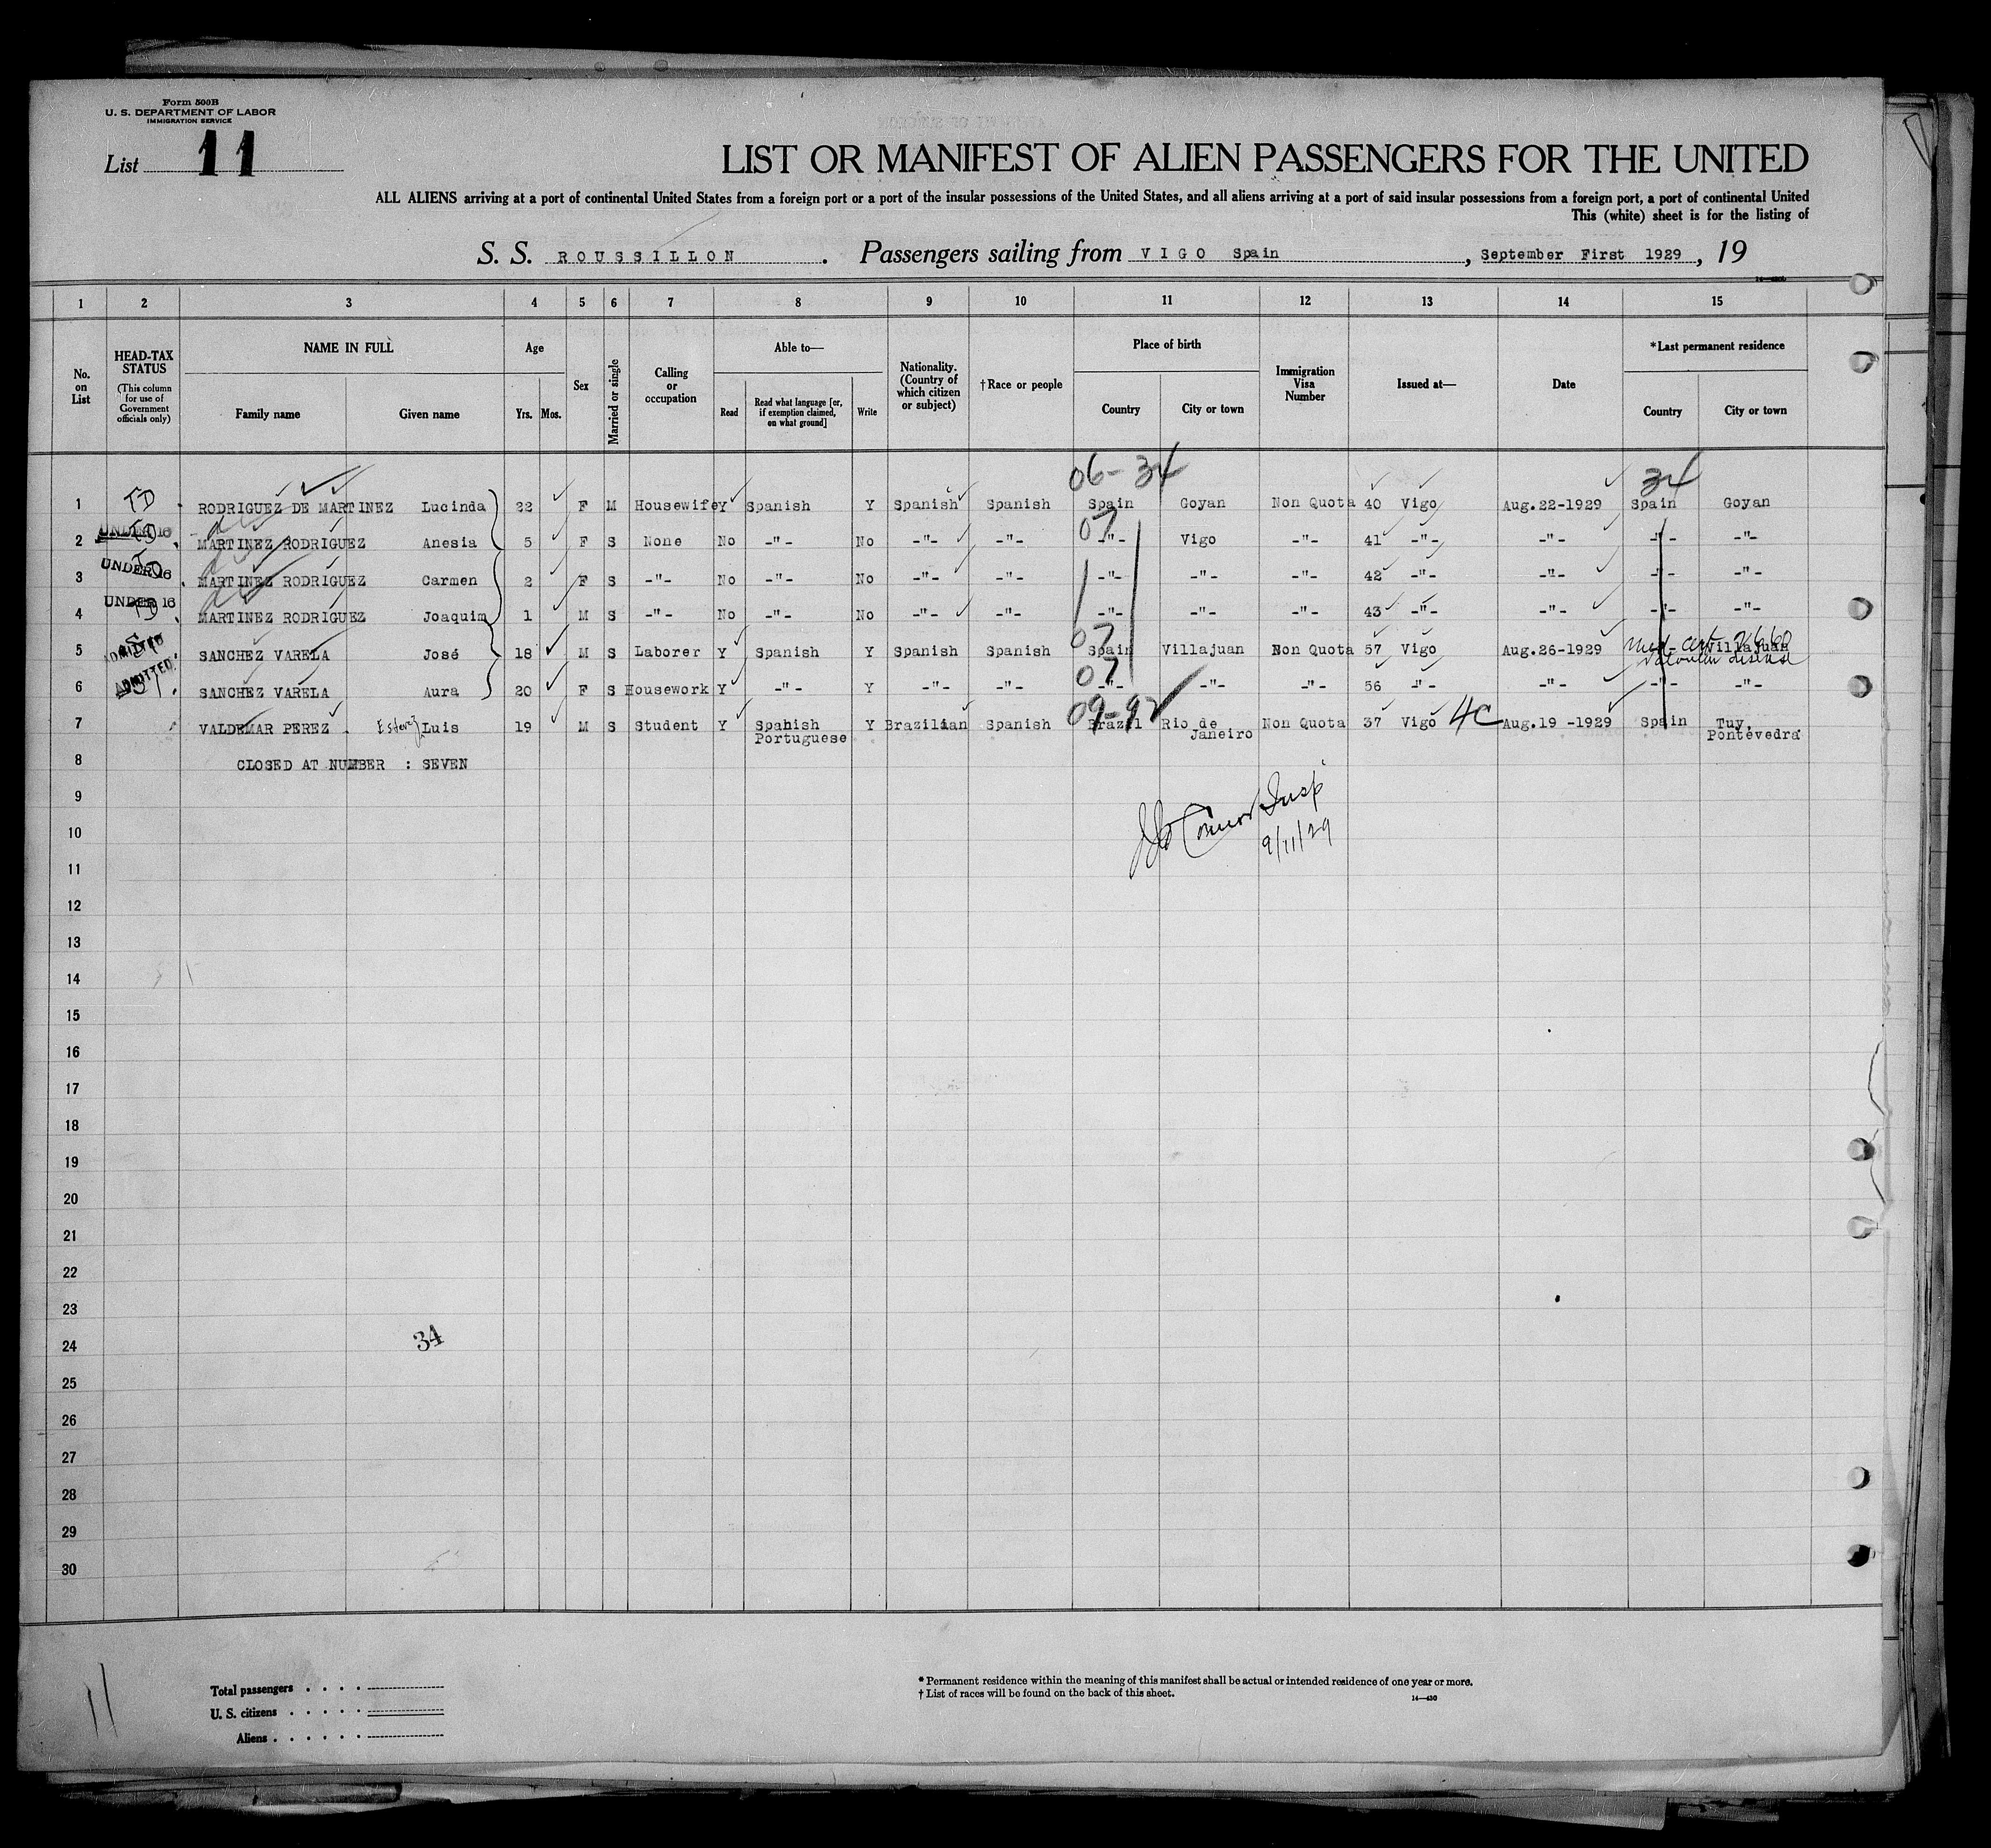 Form 500B
U. S. DEPARTMENT OF LABOR
IMMIGRATION SERVICE
List 11
LIST OR MANIFEST OF ALIEN PASSENGERS FOR THE UNITED
ALL ALIENS arriving at a port of continental United States from a foreign port or a port of the insular possessions of the United States, and all aliens arriving at a port of said insular possessions from a foreign port, a port of continental United
This (white) sheet is for the listing of
S. S. ROUSSILLON . Passengers sailing from VIGO Spain , September First 1929 , 19
1 2 3 4 5 6 7 8 9 10 11 12 13 14 15
No. on List
HEAD-TAX STATUS (This column for use of Government officials only)
NAME IN FULL Family name Given name
Age Yrs. Mos.
Sex
Married or single
Calling or occupation
Able to— Read Read what language [or, if exemption claimed, on what ground] Write
Nationality. (Country of which citizen or subject)
†Race or people
Place of birth Country City or town
Immigration Visa Number
Issued at—
Date
*Last permanent residence Country City or town
06-34 34
1 TD RODRIGUEZ DE MARTINEZ Lucinda 22 F M Housewife Y Spanish Y Spanish Spanish Spain Goyan Non Quota 40 Vigo Aug.22-1929 Spain Goyan
2 UNDER 16 TD MARTINEZ RODRIGUEZ Anesia 5 F S None No -"- No -"- -"- 07 -"- Vigo -"- 41 -"- -"- -"- -"-
3 UNDER 16 TD MARTINEZ RODRIGUEZ Carmen 2 F S -"- No -"- No -"- -"- -"- -"- -"- 42 -"- -"- -"- -"-
4 UNDER 16 TD MARTINEZ RODRIGUEZ Joaquim 1 M S -"- No -"- No -"- -"- -"- -"- -"- 43 -"- -"- -"- -"-
5 ADMITTED SANCHEZ VARELA José 18 M S Laborer Y Spanish Y Spanish Spanish 07 Spain Villajuan Non Quota 57 Vigo Aug.26-1929 Med. cert. Villajuan
disease
6 ADMITTED SANCHEZ VARELA Aura 20 F S Housework Y -"- Y -"- -"- 07 -"- -"- -"- 56 -"- -"- -"- -"-
7 VALDEMAR PEREZ . Luis 19 M S Student Y Spanish Y Brazilian Spanish 09-92 Brazil Rio de Non Quota 37 Vigo 4C Aug.19 -1929 Spain Tuy,
Portuguese Janeiro Pontevedra
8 CLOSED AT NUMBER : SEVEN
9
10
O'Connor Insp
9/11/29
11
12
13
14
15
16
17
18
19
20
21
22
23
24
34
25
26
27
28
29
30
11
Total passengers
U. S. citizens
Aliens
* Permanent residence within the meaning of this manifest shall be actual or intended residence of one year or more.
† List of races will be found on the back of this sheet.
14—430